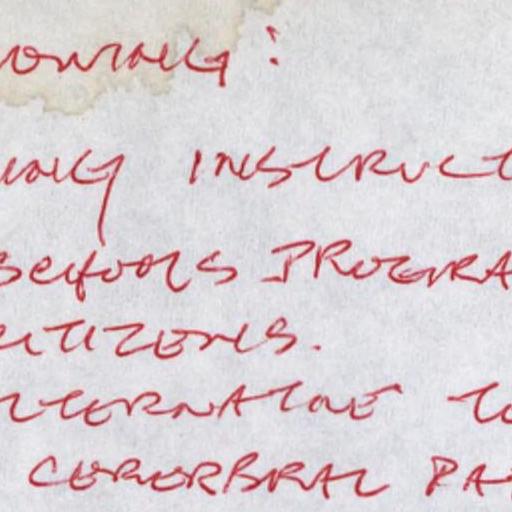 OWING:
ING INSTRUCT
SCHOOLS PROGRA
CITIZENS.
LTERNATIVE TO
CEREBRAL PA